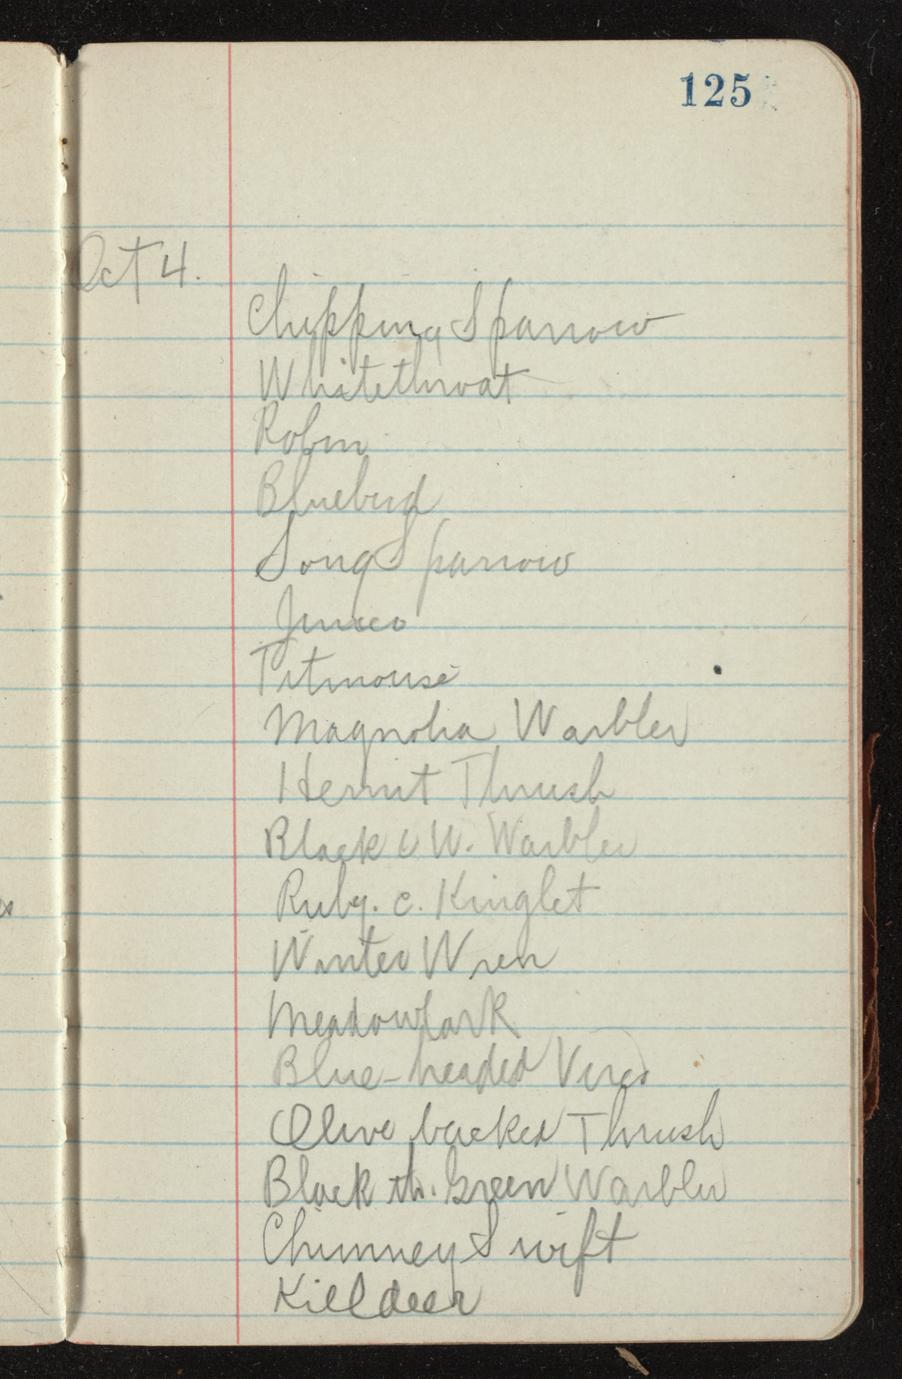 125
Oct 4.
Chipping Sparrow
Whitethroat
Robin
Bluebird
Song Sparrow
Junco
Titmouse
Magnolia Warbler
Hermit Thrush
Black & W. Warbler
Ruby. c. Kinglet
Winter Wren
Meadowlark
Blue-headed Vireo
Olive backed Thrush
Black th. Green Warbler
Chimney Swift
Killdeer